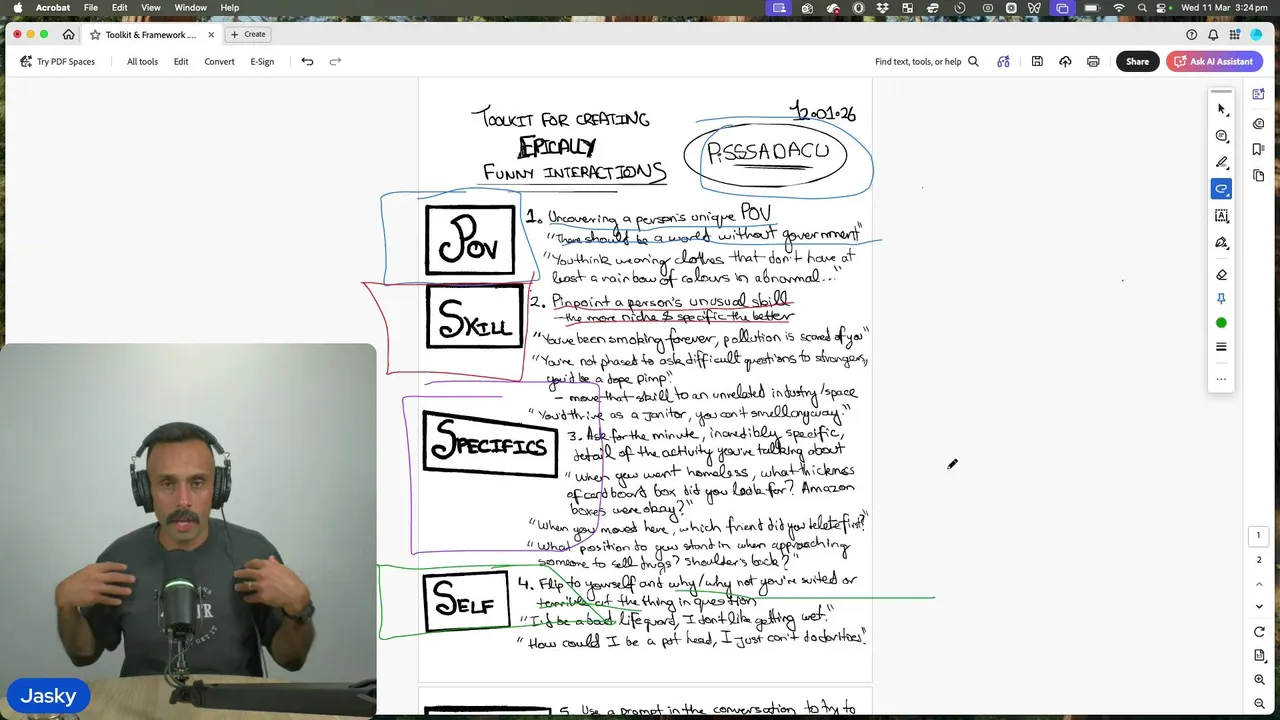 Acrobat File Edit View Window Help
Wed 11 Mar 3:24 pm
Toolkit & Framework ...
Create
Try PDF Spaces All tools Edit Convert E-Sign
Find text, tools, or help
Share
Ask AI Assistant
TOOLKIT FOR CREATING
EPICALLY
FUNNY INTERACTIONS
12.01.26
P.SSSADACU
POV
1. Uncovering a person's unique POV
"There should be a world without government"
"You think wearing clothes that don't have at
least a rainbow of colours in abnormal..."
SKILL
2. Pinpoint a person's unusual skill
- the more niche & specific the better
"You've been smoking forever, pollution is scared of you"
"You're not phased to ask difficult questions to strangers,
you'd be a dope pimp."
- move that skill to an unrelated industry/space
"You'd thrive as a janitor, you can't smell anyway."
SPECIFICS
3. Ask for the minute, incredibly specific,
detail of the activity you're talking about
"When you went homeless, what thickness
of cardboard box did you look for? Amazon
boxes were okay?"
"When you moved here, which friend did you delete first?"
"What position do you stand in when approaching
someone to sell drugs? Shoulders back?"
SELF
4. Flip to yourself and why/why not you're suited or
terrible at the thing in question
"I'd be a bad lifeguard, I don't like getting wet."
"How could I be a pot head, I just can't do dorities"
5. Use a prompt in the conversation to try to
1
2
Jasky